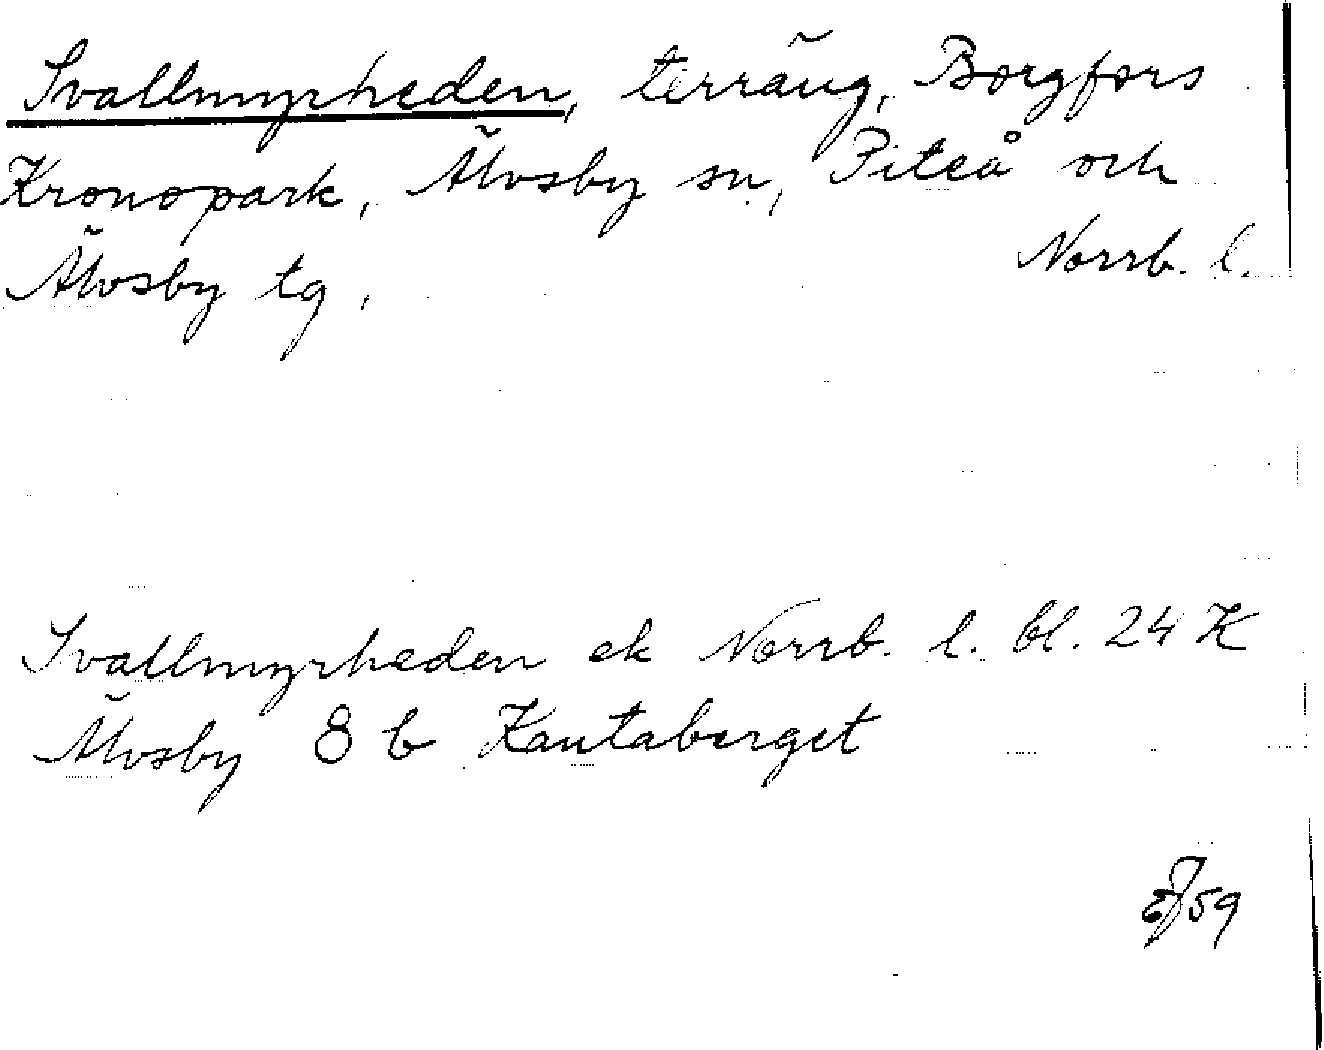 Svallmyrheden, terräng, Borgfors
Kronopark, Älvsby sn, Piteå och
Älvsby tg, Norrb. l.
Svallmyrheden ek Norrb. l. bl. 24 K
Älvsby 8 b Kantaberget
59